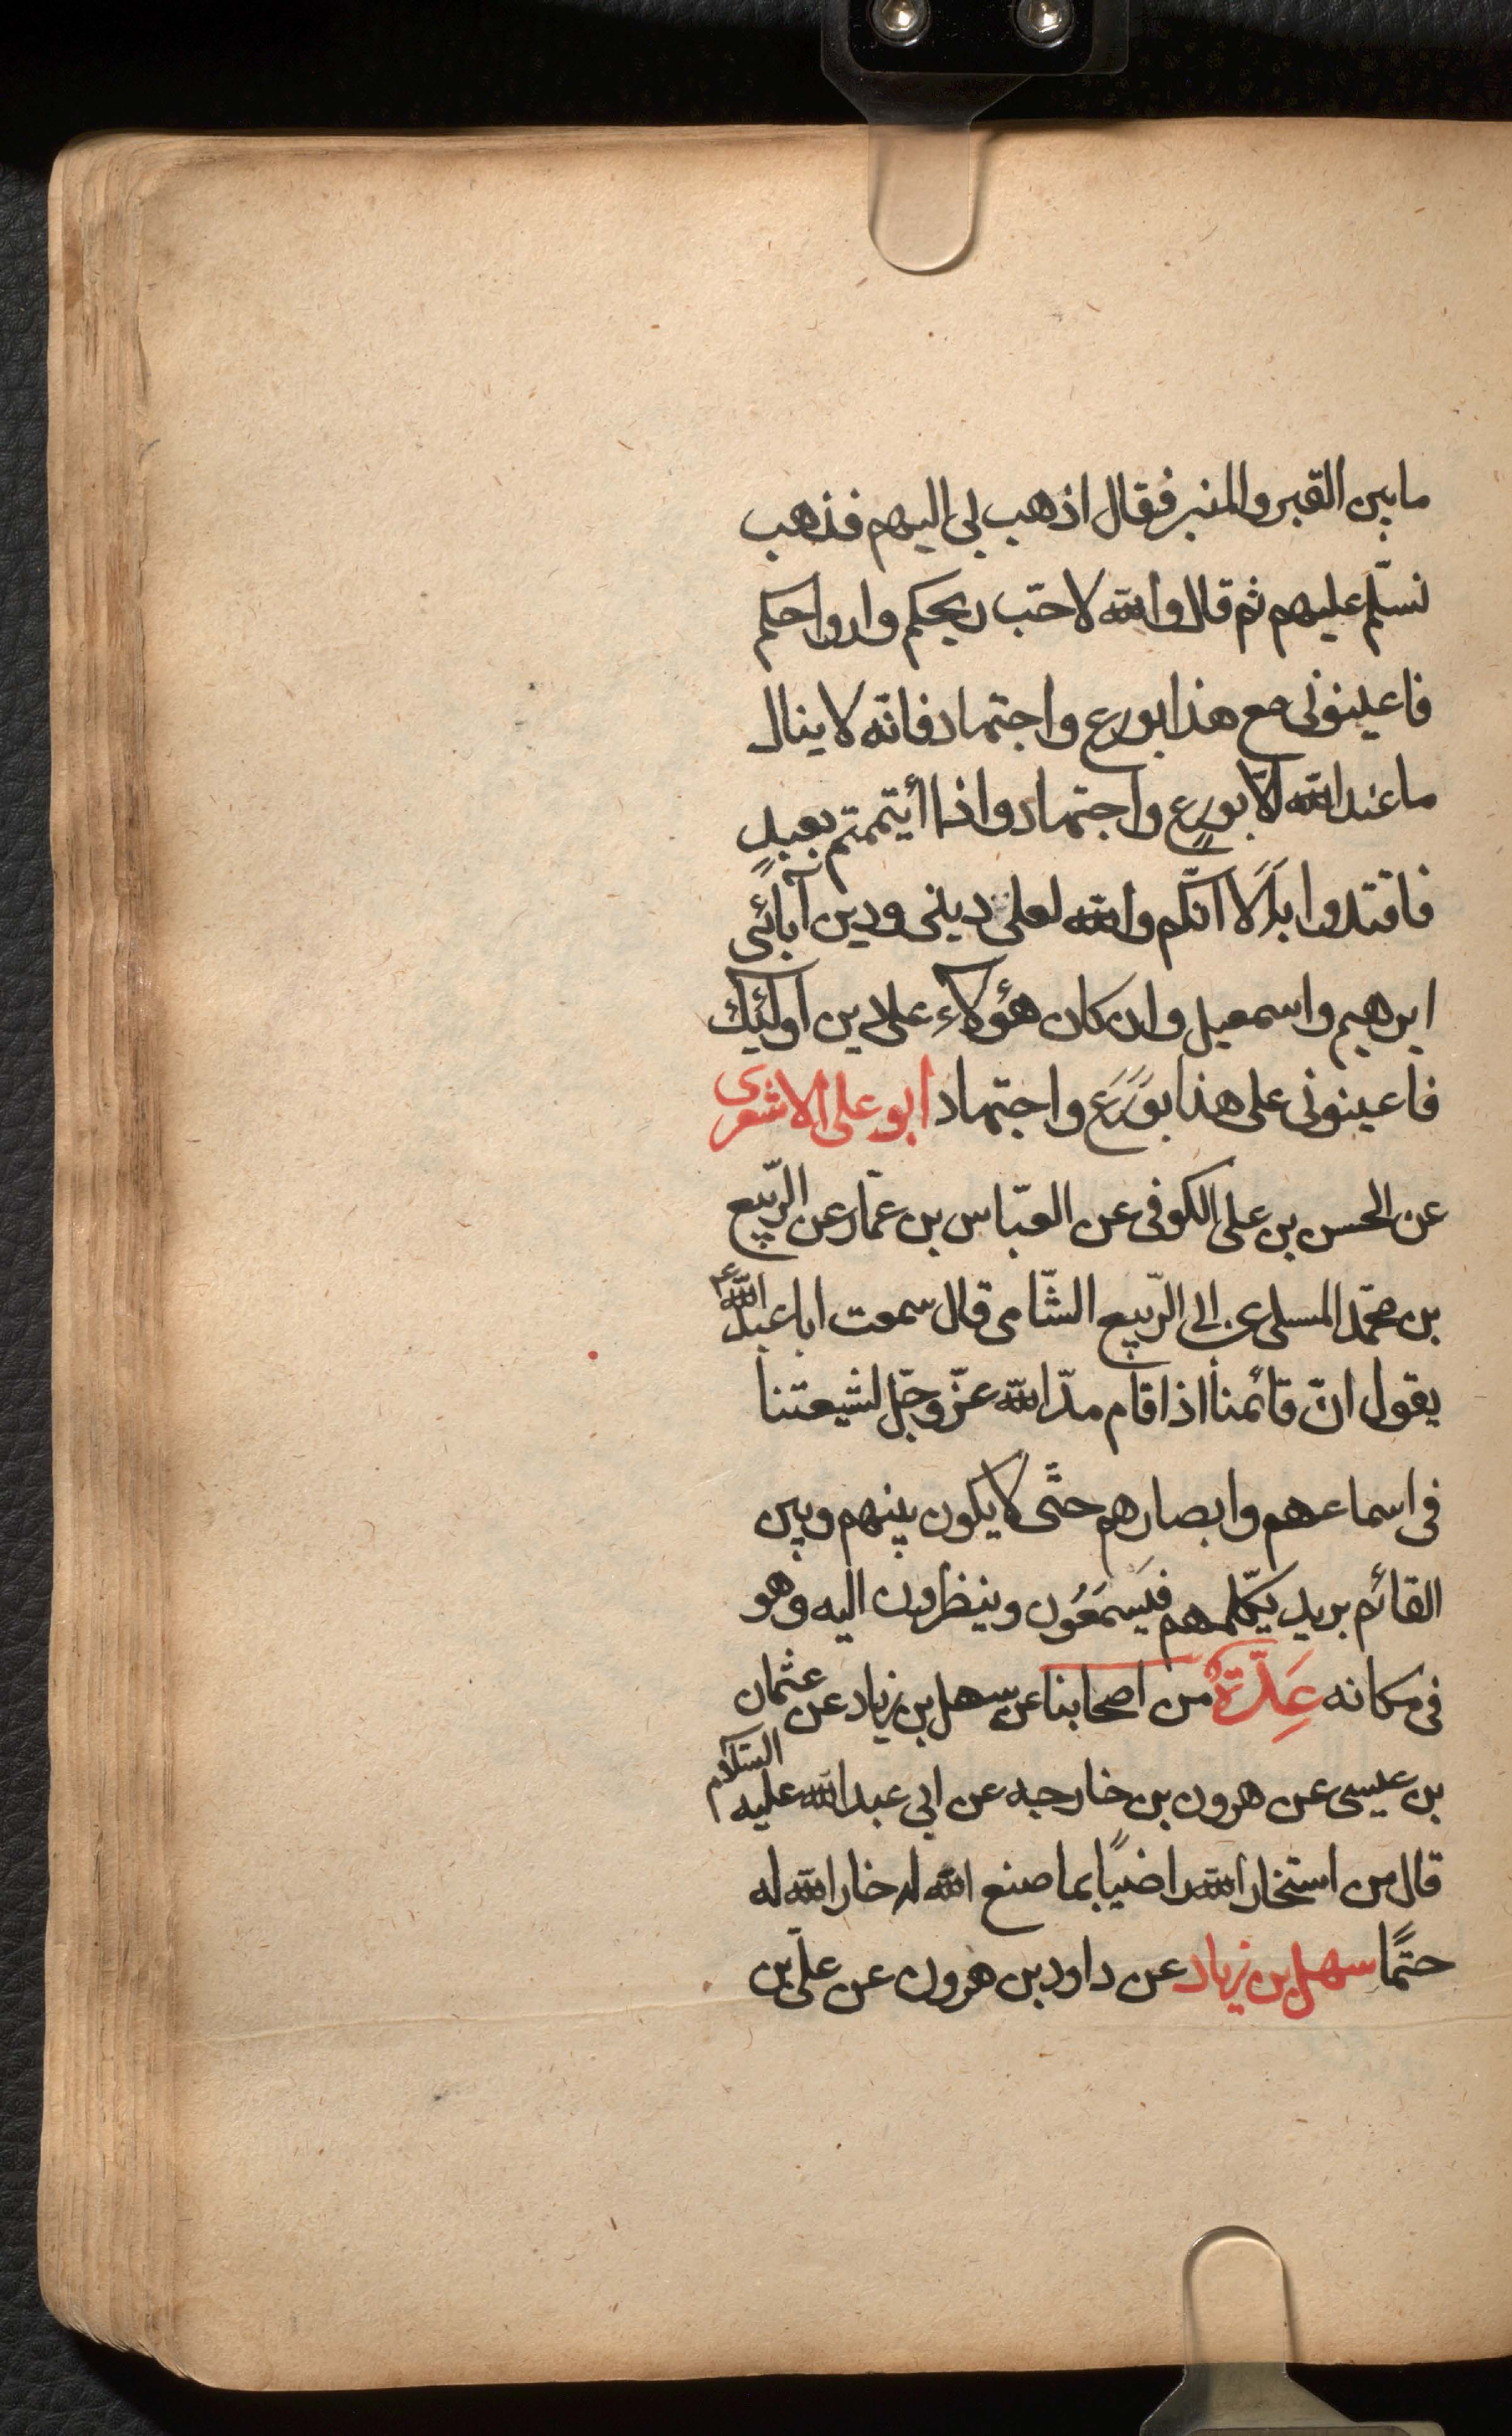 ما بين القبر والمنبر فقال اذهب بى اليهم فذهب
فسلّم عليهم ثم قال والله لاحبّ ريحكم وارواحكم
فاعينونى مع هذا بورع واجتهاد فانّه لا ينال
ما عند الله الّا بورعٍ واجتهاد واذا أيتممتم بعبدٍ
فاقتدوا به أَلَا انّكم والله لعلى دينى ودين آبائى
ابرهيم واسمعيل وان كان هؤلاء على دين اولئيك
فاعينونى على هذا بوَرَع واجتهاد ابو على الاشعرى
عن الحسن بن على الكوفى عن العبّاس بن عمّار عن الرّبيع
بن محمّد المسلى عن ابى الرّبيع الشّامى قال سمعت ابا عبد الله ع
يقول انّ قائمنا اذا قام مدّ الله عزّ وجّل لشيعتنا
فى اسماعهم وابصارهم حتّى لا يكون بينهم وبين
القائم بريد يكلّمهم فيَسمَعُون وينظرون اليه وهو
فى مكانه عِدَّةٌ من اصحابنا عن سهل بن زياد عن عثمان
بن عيسى عن هرون بن خارجه عن ابى عبد الله عليه السّلام
قال من استخار الله راضيًا بما صنع الله له خار الله له
حتمًا سهل بن زياد عن داود بن هرون عن علىّ بن